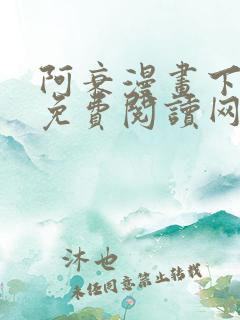 阿衰漫畫下
免費閱讀网
沐也
未经同意禁止转载